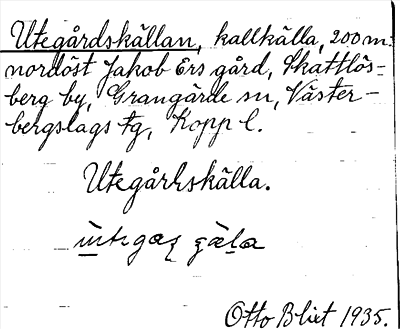 Utegårdskällan, kallkälla, 200 m.
nordöst Jakob Ers gård, Skattlös-
berg by, Grangärde sn, Väster-
bergslags tg, Kopp l.
Utegårdskälla.
Otto Blixt 1935.